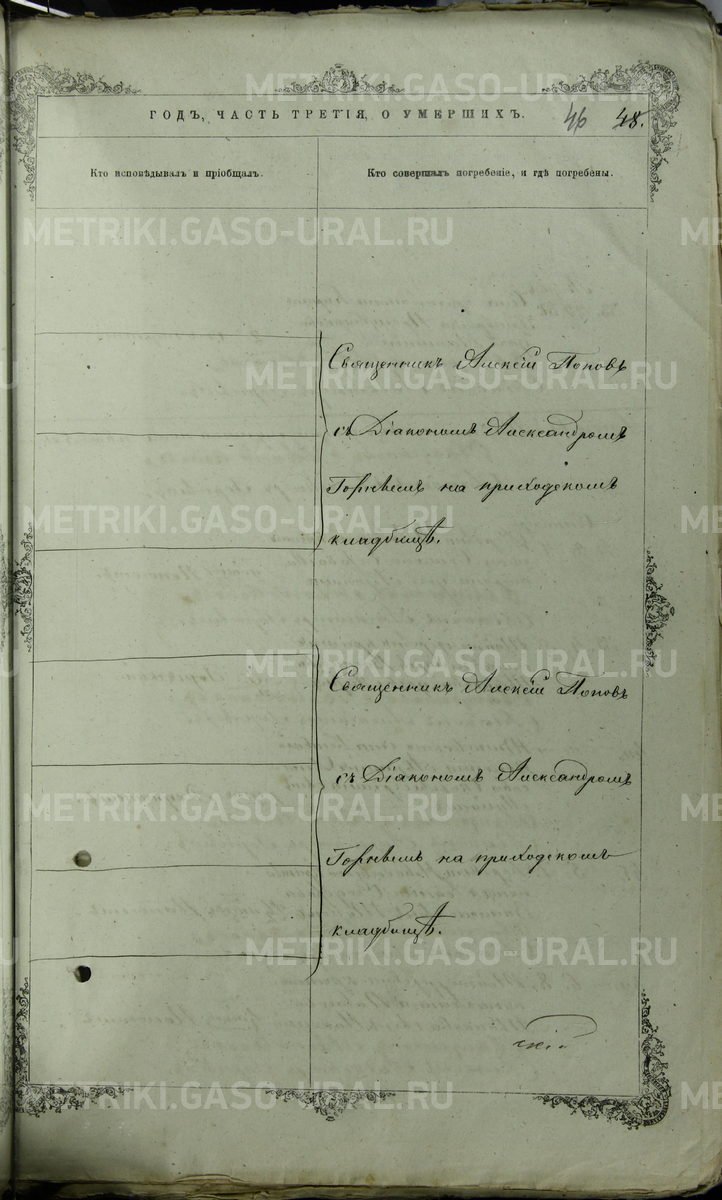 ГОДЪ, ЧАСТЬ ТРЕТІЯ, О УМЕРШИХЪ.
46 48.
Кто исповѣдывалъ и пріобщалъ.
Кто совершалъ погребеніе, и гдѣ погребены.
Священникъ Алексій Поповъ
съ Діакономъ Александромъ
на приходскомъ
кладбищѣ.
Священникъ Алексій Поповъ
съ Діакономъ Александромъ
на приходскомъ
кладбищѣ.
METRIKI.GASO-URAL.RU